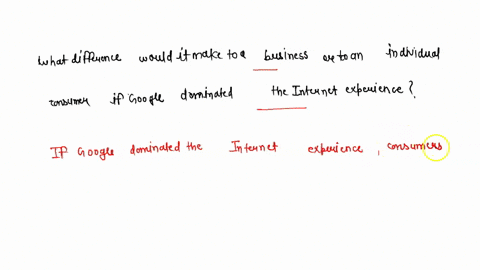 What difference would it make to a business or to an individual
consumer if Google dominated the Internet experience?
If Google dominated the Internet experience, consumers